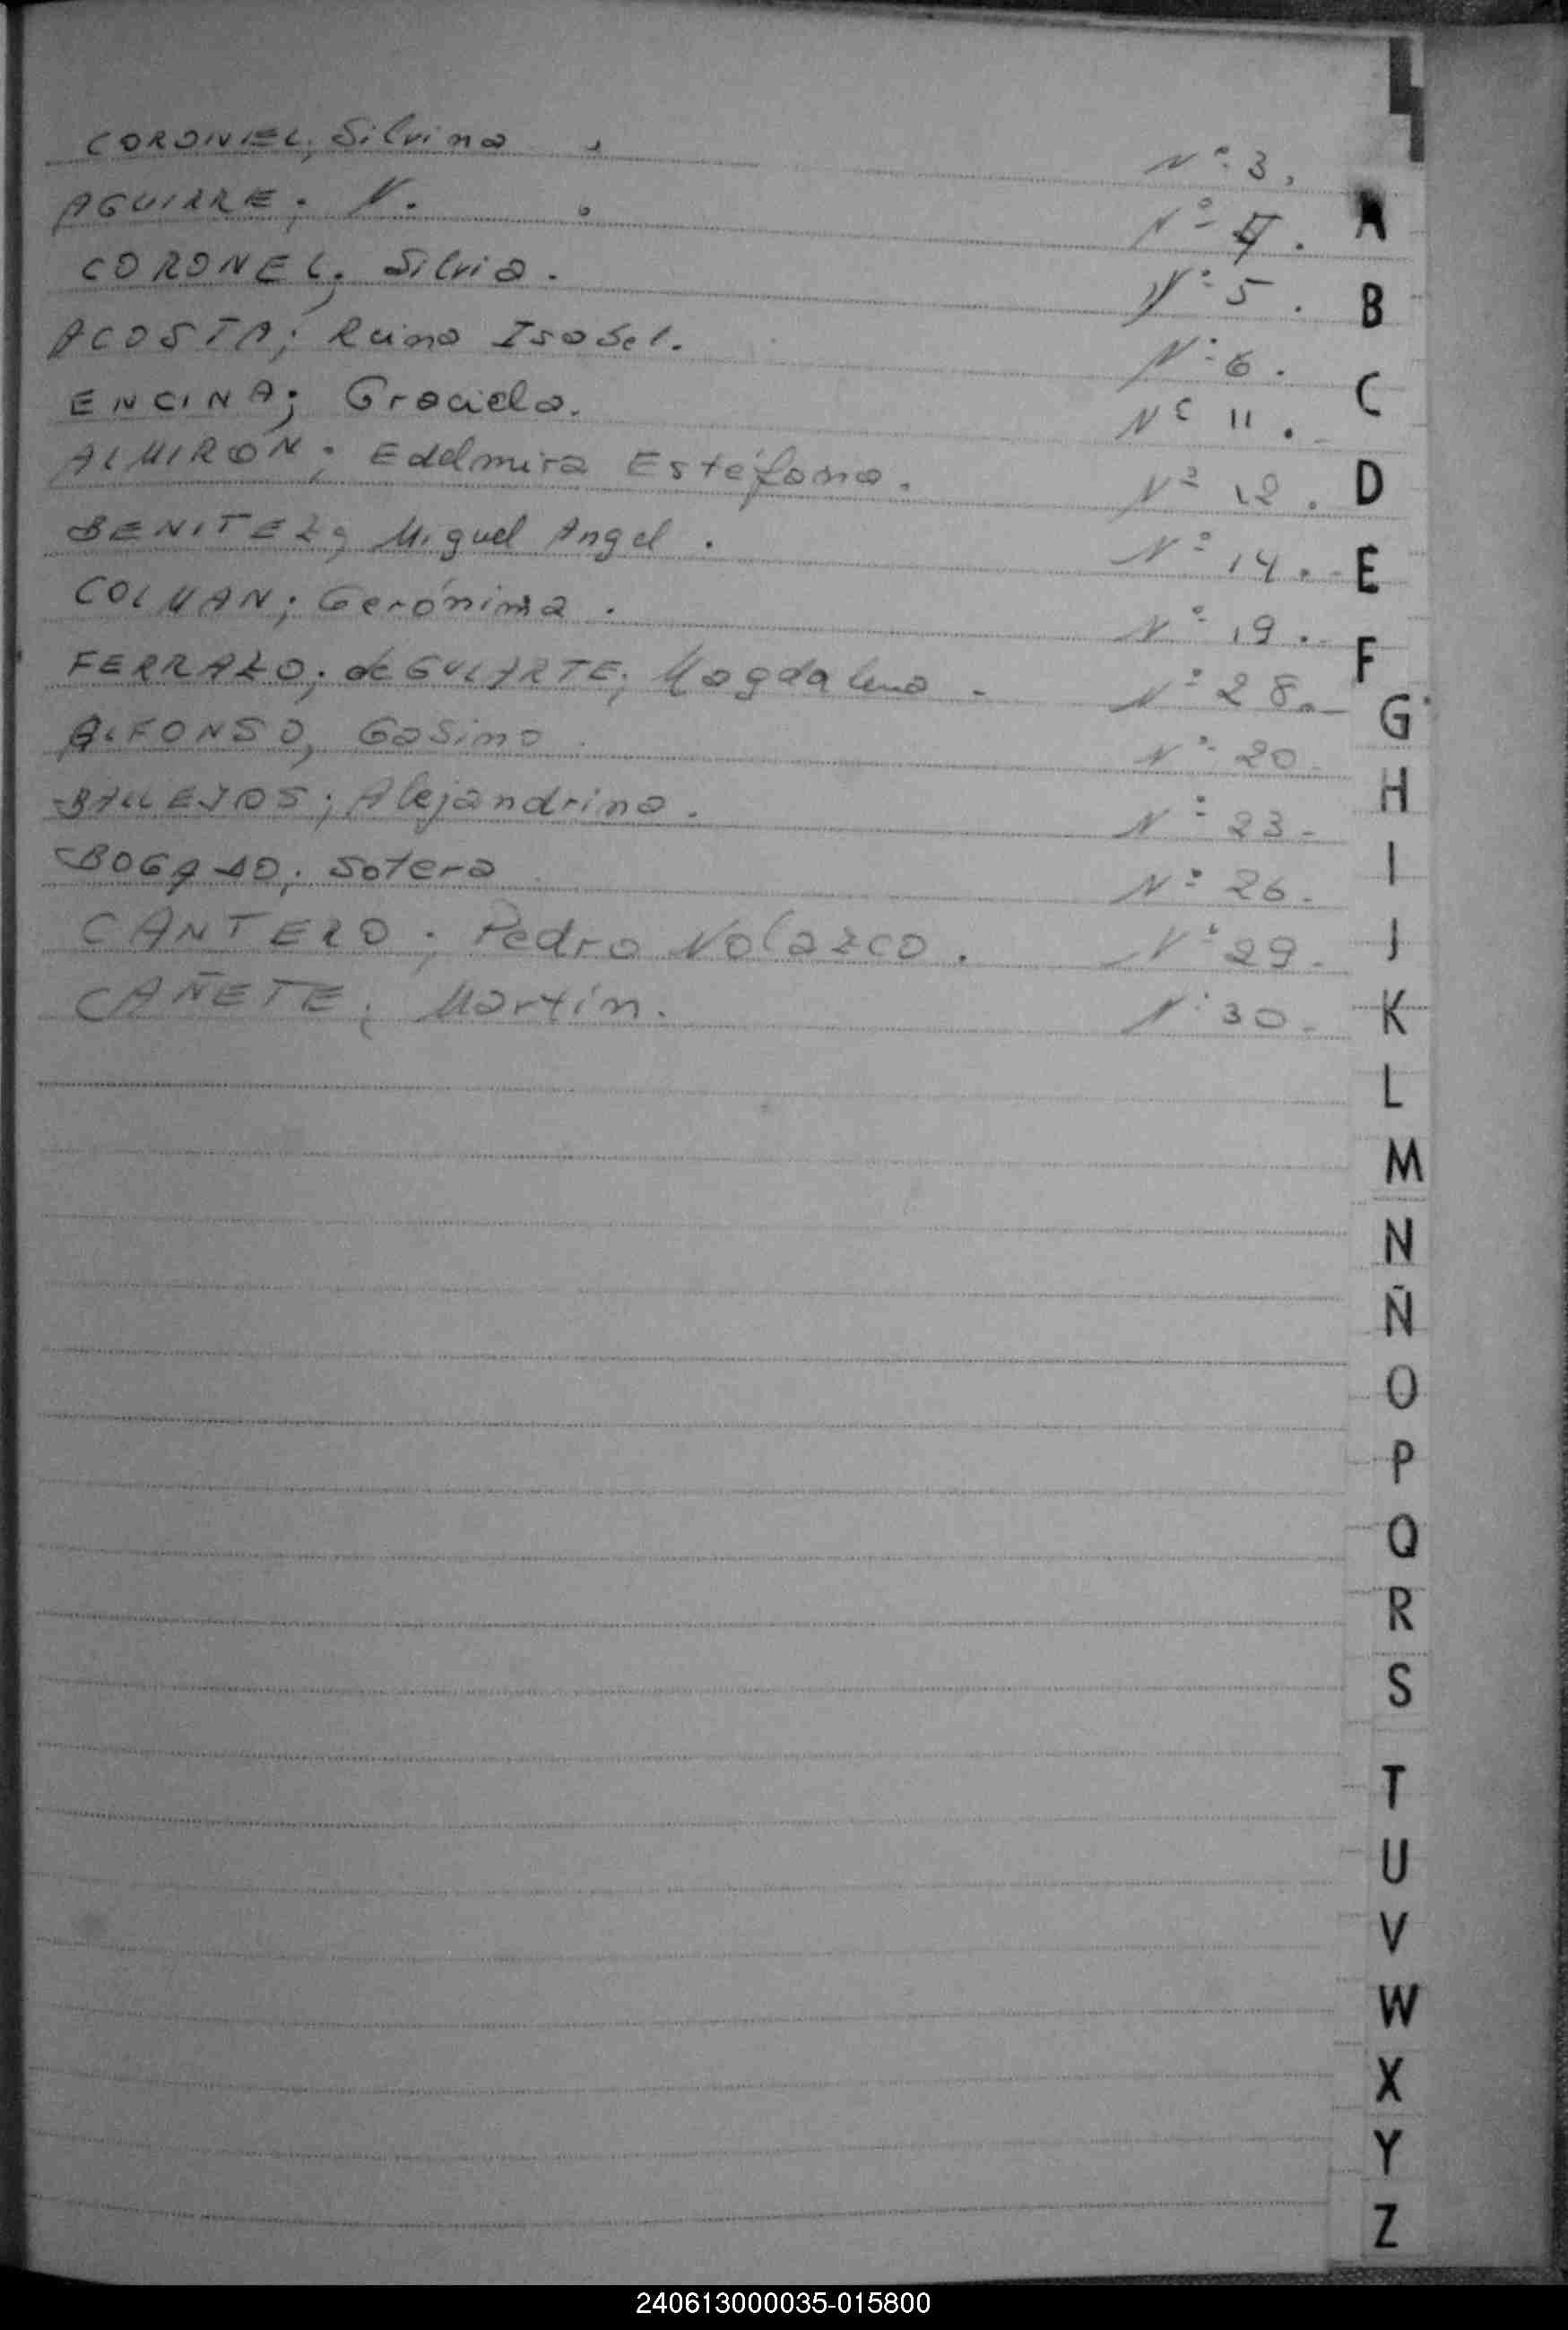 CORONEL, Silvina . Nº 3.
AGUIRRE; N. . Nº 4.
CORONEL; Silvia. Nº 5.
ACOSTA; Reina Isabel. Nº 6.
ENCINA; Graciela. Nº 11.
ALMIRÓN; Edelmira Estéfana. Nº 12.
BENITEZ; Miguel Angel. Nº 14.
COLMAN; Gerónima. Nº 19.
FERRAZO; de GULARTE; Magdalena. Nº 28.
ALFONSO, Casimo Nº 20.
BALLEJOS; Alejandrina. Nº 23.
BOGADO; Sotera Nº 26.
CANTERO; Pedro Nolazco. Nº 29.
CAÑETE; Martín. Nº 30.
A
B
C
D
E
F
G
H
I
J
K
L
M
N
Ñ
O
P
Q
R
S
T
U
V
W
X
Y
Z
240613000035-015800